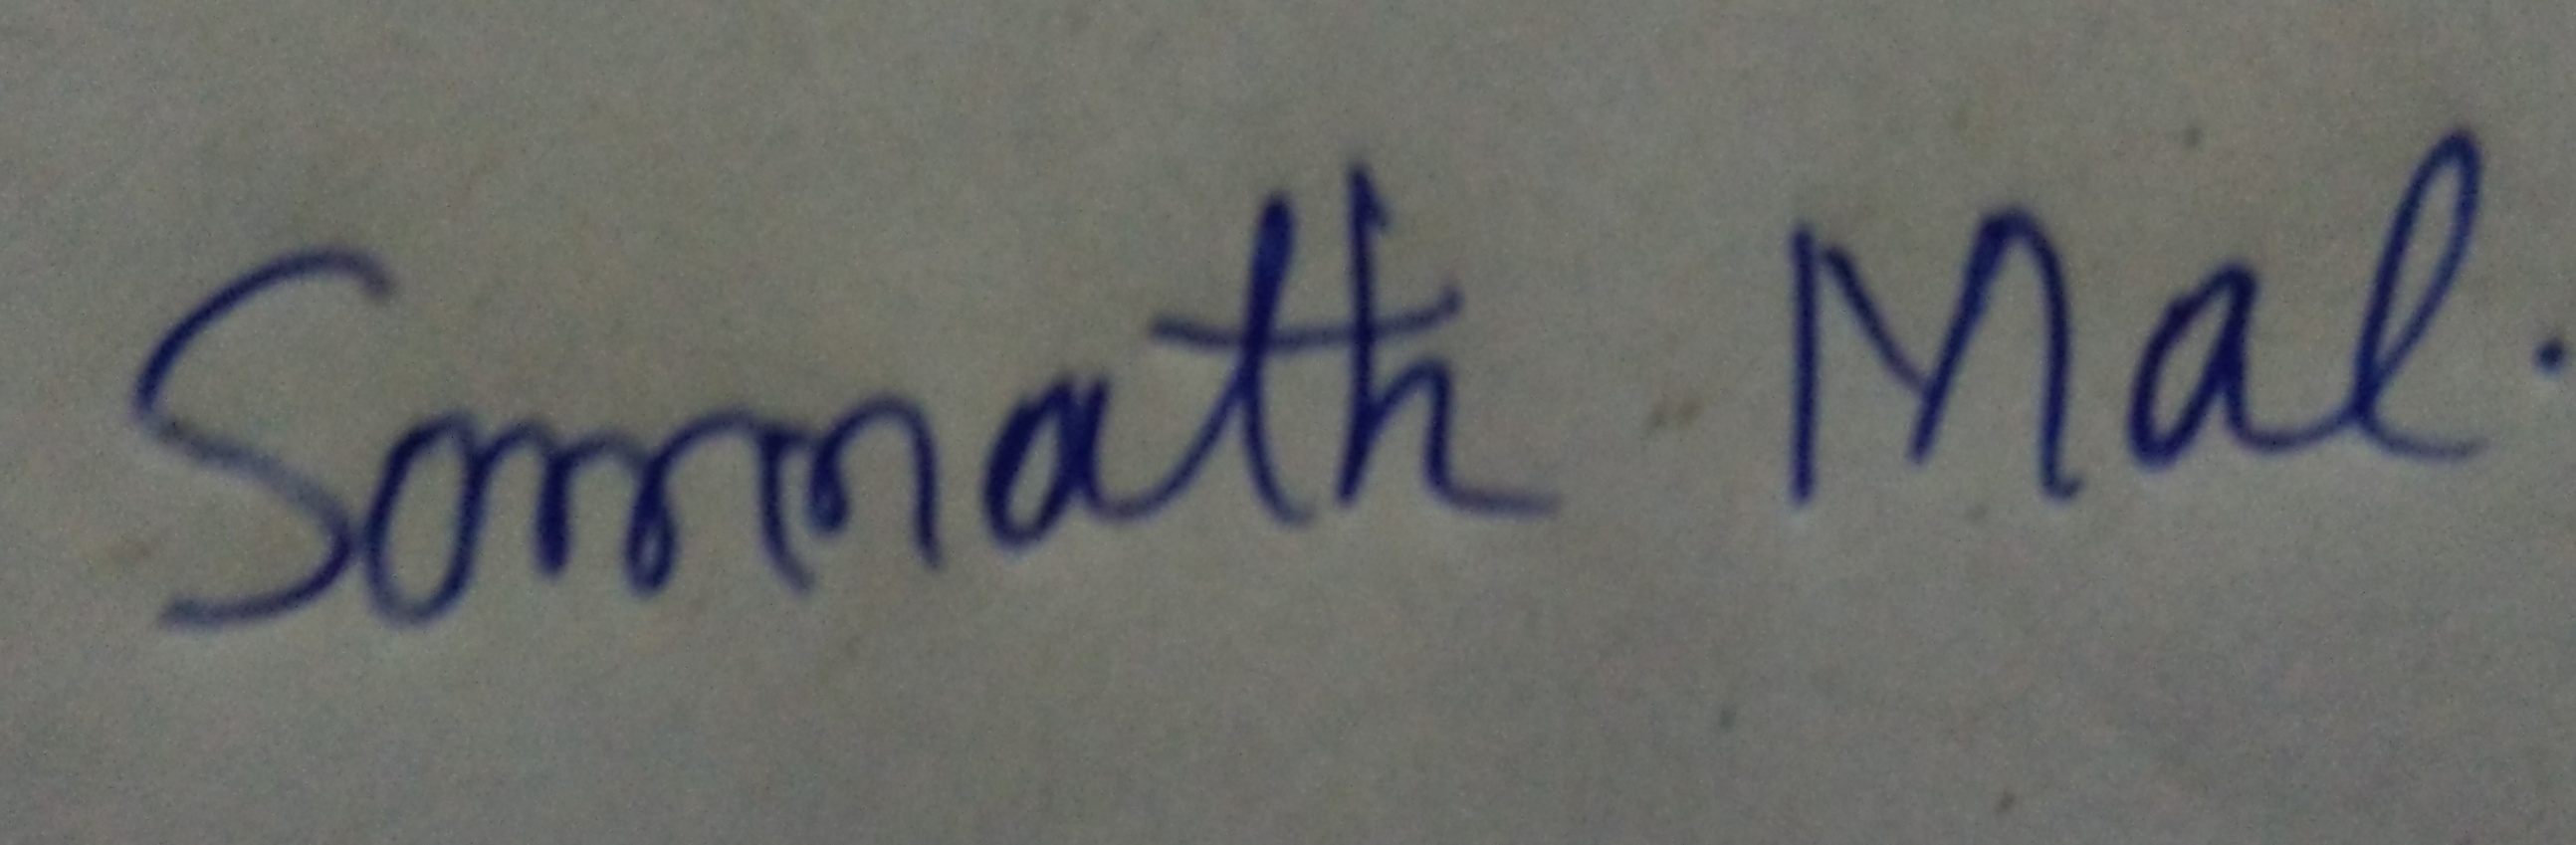 Somnath Mal.